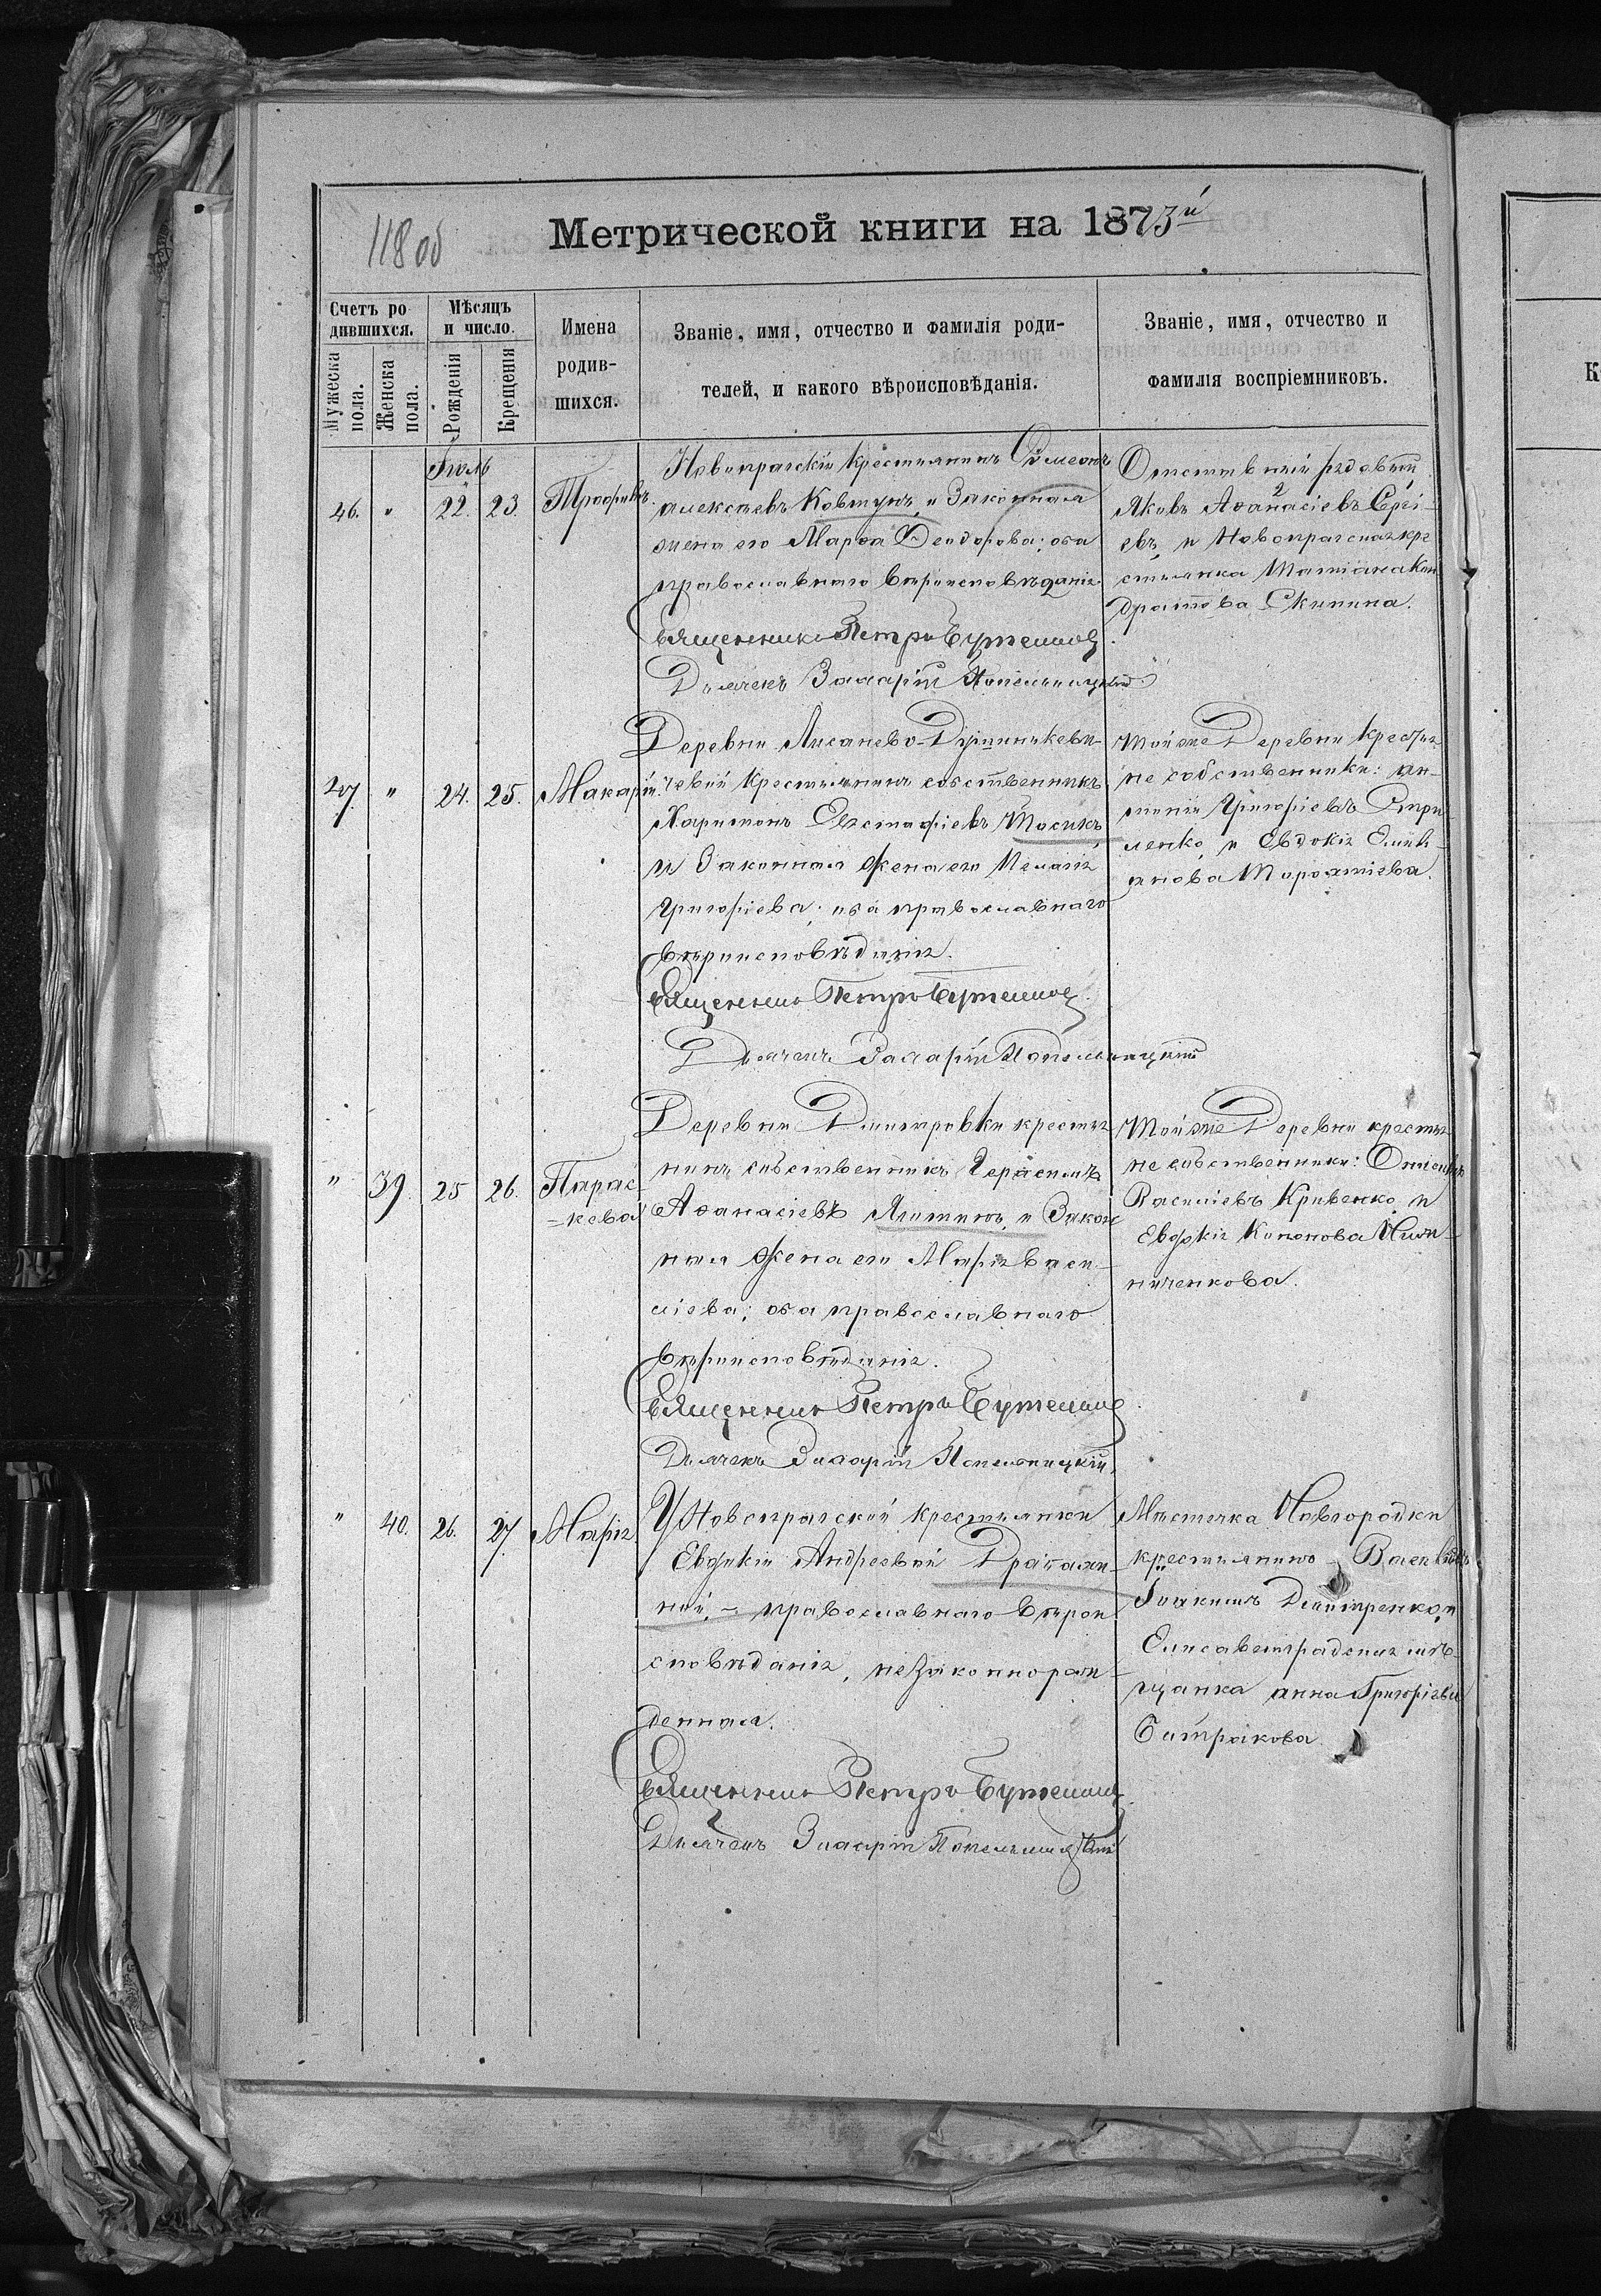 118 об
Метрической книги на 1873й
Счетъ ро
дившихся.
Мужеска пола.
Женска пола.
Мѣсяцъ
и число.
Рожденія
Крещенія
Имена
родив-
шихся.
Званіе, имя, отчество и фамилія роди-
телей, и какого вѣроисповѣданія.
Званіе, имя, отчество и
фамилія воспріемниковъ.
Іюль
46. " 22. 23. Трофимъ.
Новопрагскій крестьянинъ Симеонъ
Алексѣевъ Ковтунъ, и Законная
жена его Марѳа Ѳеодорова; оба
православнаго вѣроисповѣданія.
Священникъ Петръ
Дьячекъ Захарій Попельницкій
Отставный рядовый
Яковъ Аѳанасіевъ Сергі-
евъ, и Новопрагская кре
стьянка Татіана Кон
дратова Скипина.
47. " 24. 25. Макарій.
Деревни
чевой крестьянинъ собственникъ
Харитонъ Евстафіевъ Тосикъ
и Законная жена его Пелагія
Григоріева; оба православнаго
вѣроисповѣданія.
Священникъ Петръ
Дьячекъ Захарій Попельницкій
Той же Деревни крестья
не собственники: Ан-
тоній Григоріевъ
ленко, и Евдокія Емилі-
анова
" 39. 25 26. Парас-
=кева
Деревни Димитровки крестья
нинъ собственникъ Герасимъ
Аѳанасіевъ и Закон
ная жена его Марія Васи-
ліева; оба православнаго
вѣроисповѣданія.
Священникъ Петръ
Дьячекъ Захарій Попельницкій
Той же Деревни крестья
не собственники: Онисимъ
Василіевъ Кривенко, и
Евдокія Кононова
ниченкова.
" 40. 26. 27 Марія
У Новопрагской крестьянки
Евдокіи Андреевой
ной, - православнаго вѣрои
сповѣданія, незаконнорож-
денная.
Священникъ Петръ
Дьячекъ Захарій Попельницкій
Мѣстечка Новгородки
крестьянинъ
Іоакимъ Димитренко, и
Елисаветградская мѣ-
щанка Анна Григоріева